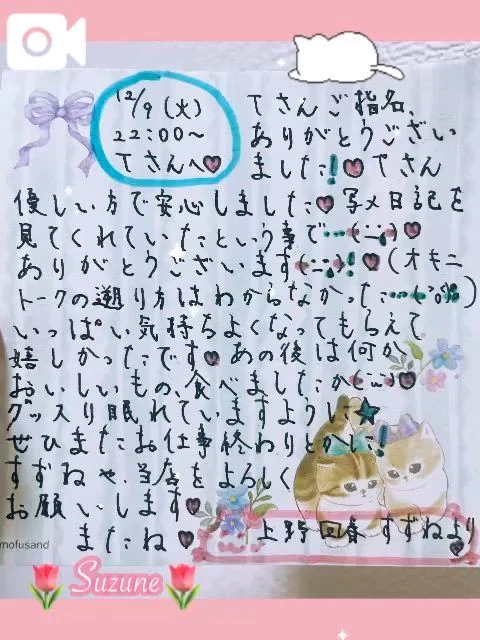 12/9 (火)
22:00〜
Tさんへ♥
Tさんご指名、
ありがとうござい
ました!♥Tさん
優しい方で安心しました♥写メ日記を
見てくれていたという事で…(¨̮)♥
ありがとうございます(¨̮)!♥(オキニ
トークの遡り方はわからなかった…)
いっぱい気持ちよくなってもらえて
嬉しかったです♥あの後は何か
おいしいもの、食べましたか(¨̮)♥
グッスリ眠れていますように★
ぜひまたお仕事終わりとかに!
すずねや、当店をよろしく
お願いします♥
またね♥
上野回春 すずねより♥
mofusand
Suzune